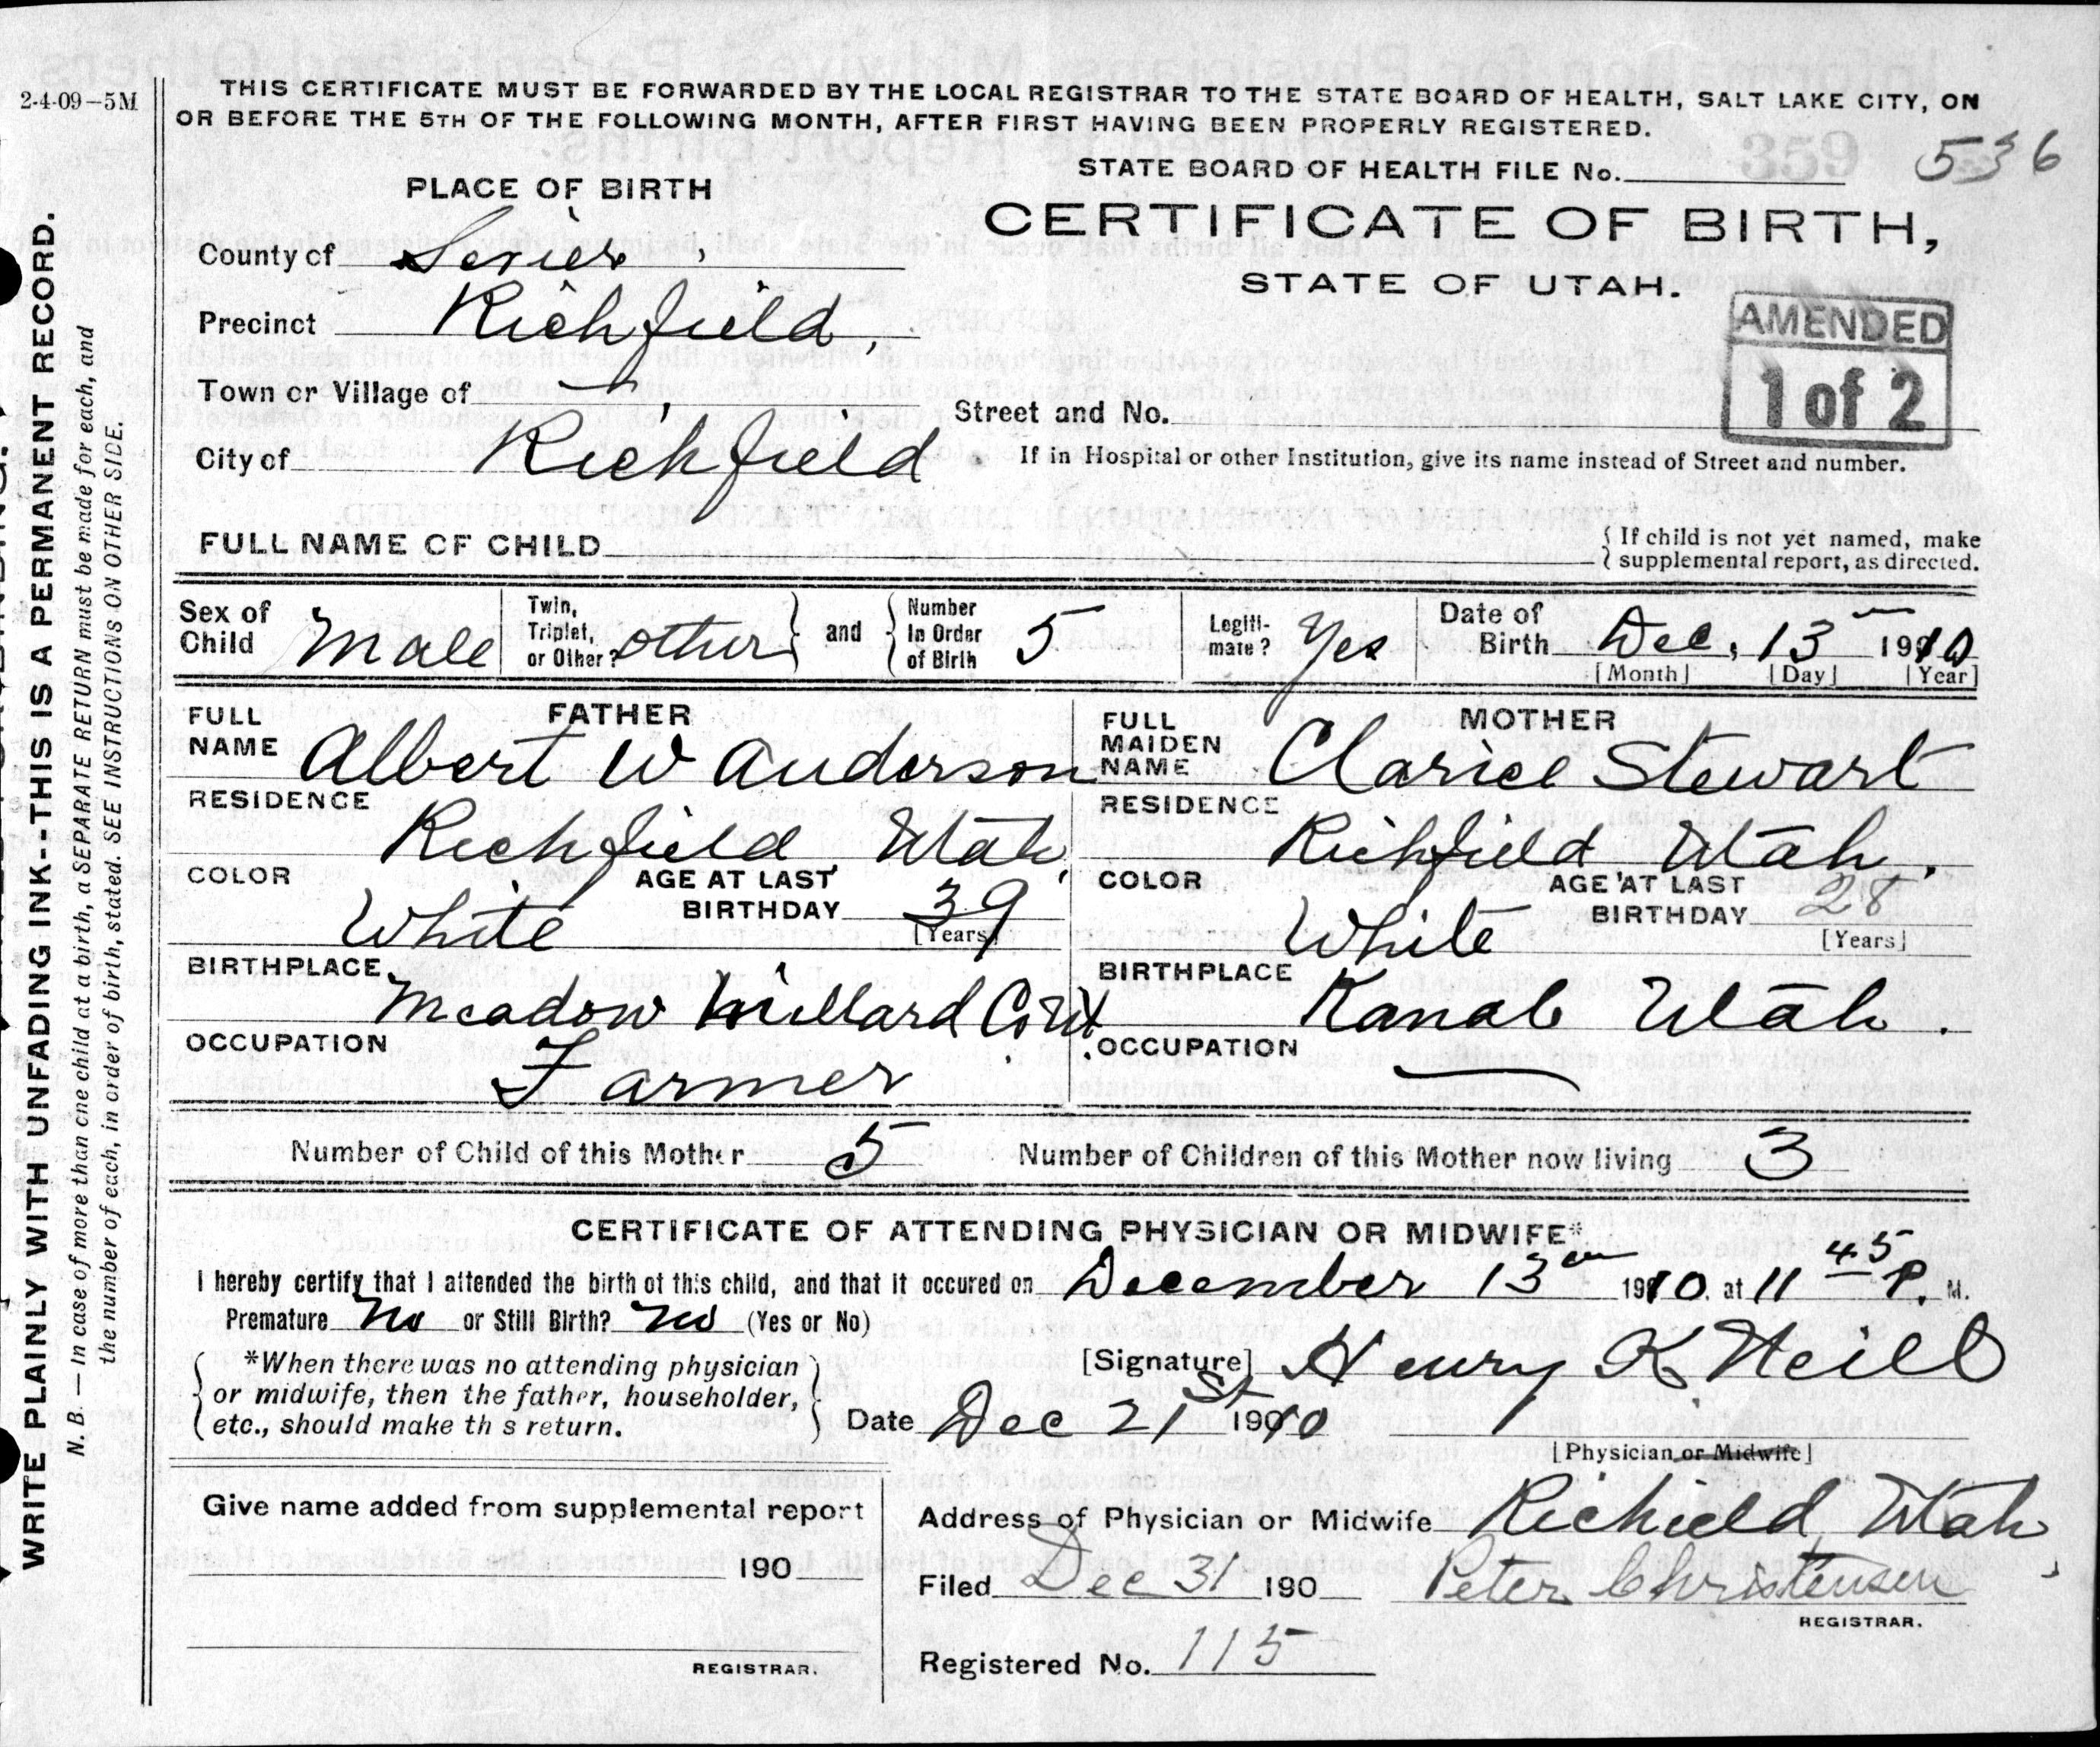 2-4-09—5M
THIS CERTIFICATE MUST BE FORWARDED BY THE LOCAL REGISTRAR TO THE STATE BOARD OF HEALTH, SALT LAKE CITY, ON
OR BEFORE THE 5TH OF THE FOLLOWING MONTH, AFTER FIRST HAVING BEEN PROPERLY REGISTERED.
STATE BOARD OF HEALTH FILE No. 359 536
PLACE OF BIRTH
CERTIFICATE OF BIRTH,
STATE OF UTAH.
AMENDED
1 of 2
County of Sevier,
Precinct Richfield,
Town or Village of
Street and No.
City of Richfield.
If in Hospital or other Institution, give its name instead of Street and number.
FULL NAME OF CHILD
{ If child is not yet named, make
supplemental report, as directed.
Sex of Child Male
Twin, Triplet, or Other? other } and { Number In Order of Birth 5
Legiti-mate? Yes
Date of Birth Dec, 13 1910
[Month] [Day] [Year]
FATHER
FULL NAME Albert W Anderson
RESIDENCE
Richfield, Utah,
COLOR White
AGE AT LAST BIRTHDAY 39
[Years]
BIRTHPLACE,
Meadow Millard Co Ut.
OCCUPATION
Farmer
MOTHER
FULL MAIDEN NAME Clarice Stewart
RESIDENCE
Richfield Utah.
COLOR White
AGE AT LAST BIRTHDAY 28
[Years]
BIRTHPLACE
Kanab Utah.
OCCUPATION —
Number of Child of this Mother 5
Number of Children of this Mother now living 3
CERTIFICATE OF ATTENDING PHYSICIAN OR MIDWIFE*
I hereby certify that I attended the birth of this child, and that it occured on December 13 1910. at 11 45 P. M.
Premature No or Still Birth? No (Yes or No)
*When there was no attending physician
or midwife, then the father, householder,
etc., should make th s return.
[Signature] Henry K Neill
Date Dec 21st 1910
[Physician or Midwife]
Give name added from supplemental report
190
REGISTRAR.
Address of Physician or Midwife Richield, Utah,
Filed Dec 31 190 Peter Christensen
REGISTRAR.
Registered No. 115
WRITE PLAINLY WITH UNFADING INK--THIS IS A PERMANENT RECORD.
N. B. — In case of more than one child at a birth, a SEPARATE RETURN must be made for each, and
the number of each, in order of birth, stated. SEE INSTRUCTIONS ON OTHER SIDE.